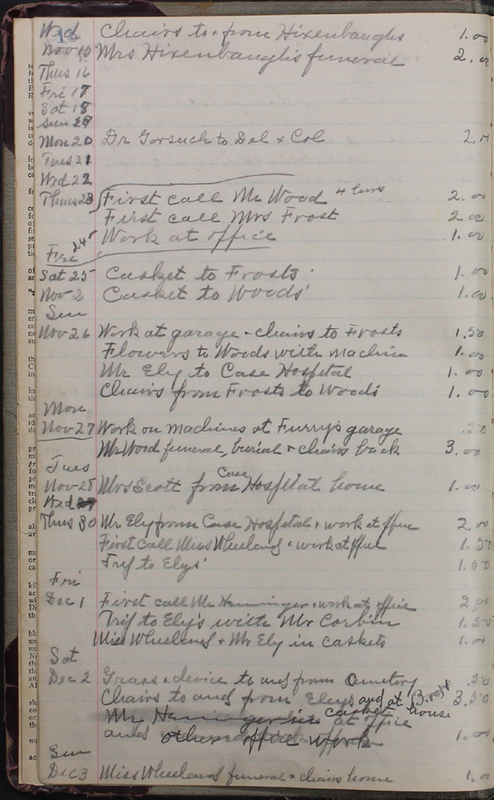 Wed Chairs to & from Hixenbaughs 1.00
Nov 15 Mrs Hixenbaughs funeral 2.00
Thus 16
Fri 17
Sat 18
Sun 29
Mon 20 Dr Gorsuch to Del & Col 2.
Tues 21
Wed 22
Thues 23 First call Mr Wood 4 hurs 2.00
First call Mrs Frost 2.00
Work at office 1.00
Fri 24
Sat 25 Casket to Frosts 1.00
Nov 2 Casket to Woods' 1.00
Sun
Nov 26 Work at garage & chairs to Frosts 1.50
Flowers to Woods with machine 1.00
Mr Ely to Case Hospital 1.00
Chairs from Frosts to Woods 1.00
Mon
Nov 27 Work on machines at Furry's garage .50
Mr Wood funeral, burial & chairs back 3.00
Tues
Nov 28 Mrs Scott from Case Hospital home 1.00
Wed 29
Thus 30 Mr Ely from Case Hospital & work at office 2.00
First call Miss Wheeland & work at office 1.50
Trip to Elys' 1.50
Fri
Dec 1 First call Mr & work at office 2.00
Trip to Ely's with Mr Corbin 1.50
Miss Wheeland & Mr Ely in caskets 1.00
Sat
Dec 2 Grass & device to and from Cemetery .50
Chairs to and from Elys and at 3.50
Mr casket at office house
and other office work 1.00
Sun
Dec 3 Miss Wheeland funeral & chairs home 1.